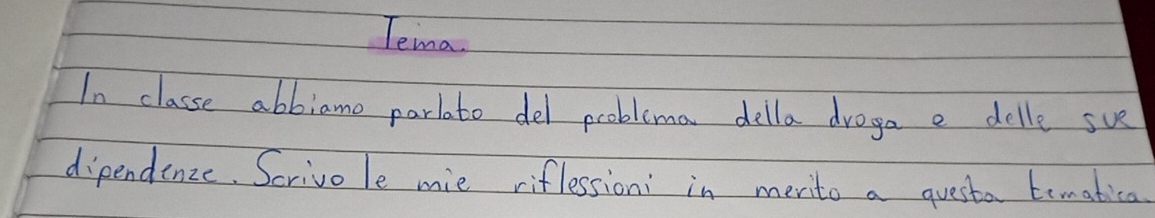 Tema.
In classe abbiamo parlato del problema della droga e delle sue
dipendenze. Scrivo le mie riflessioni in merito a questa tematica.